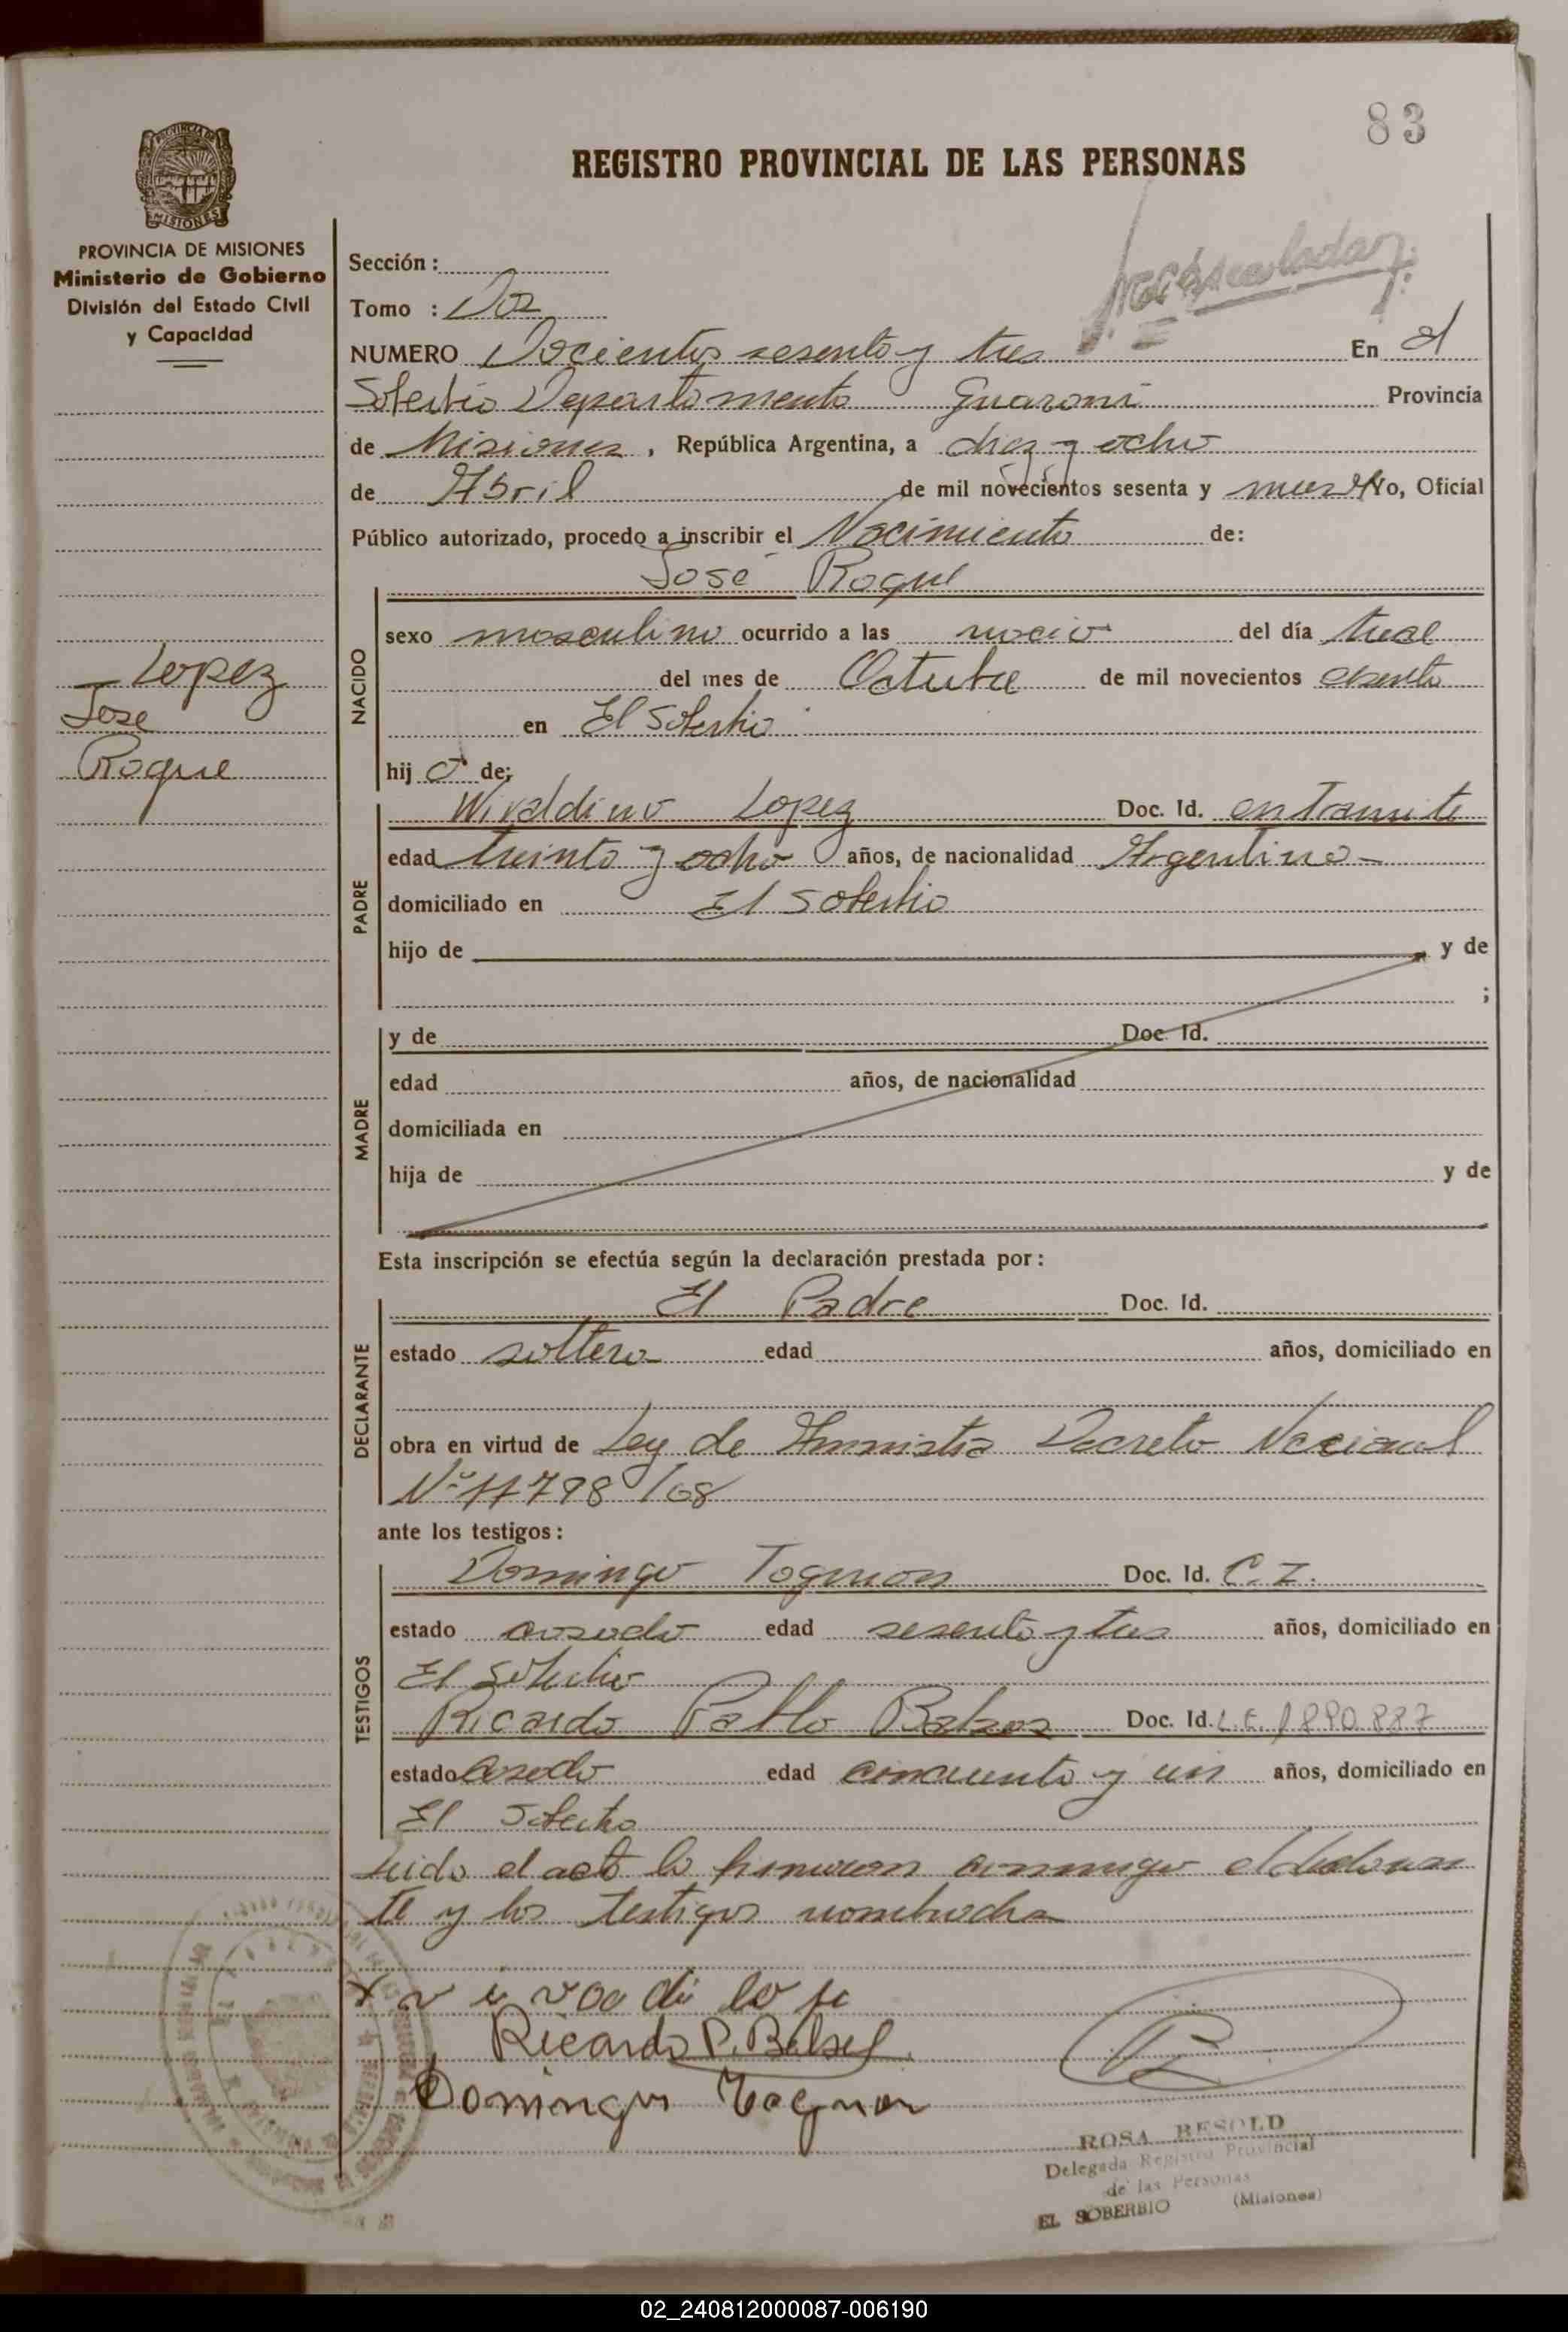 83
REGISTRO PROVINCIAL DE LAS PERSONAS
PROVINCIA DE MISIONES
Ministerio de Gobierno
División del Estado Civil
y Capacidad
Lopez
Jose
Roque
Sección :
Tomo : Dos
NUMERO Docientos sesenta y tres En el
Soberbio Departamento Guarani Provincia
de Misiones, República Argentina, a diez y ocho
de Abril de mil novecientos sesenta y nueve Yo, Oficial
Público autorizado, procedo a inscribir el Nacimiento de:
José Roque
NACIDO
sexo masculino ocurrido a las del día trece
del mes de Octubre de mil novecientos
en El Soberbio
hij o de;
PADRE
Wivaldino Lopez Doc. Id. en tramite
edad treinta y ocho años, de nacionalidad Argentino
domiciliado en El Soberbio
hijo de y de
;
MADRE
y de Doc. Id.
edad años, de nacionalidad
domiciliada en
hija de y de
Esta inscripción se efectúa según la declaración prestada por :
DECLARANTE
El Padre Doc. Id.
estado soltero edad años, domiciliado en
obra en virtud de Ley de Amnistia Decreto Nacional
Nº 17798/68
ante los testigos :
TESTIGOS
Domingo Tognon Doc. Id. C. I.
estado casado edad sesenta y tres años, domiciliado en
El Soberbio
Ricardo Pablo Doc. Id. L.E. 1890887
estado casado edad cincuenta y un años, domiciliado en
El Soberbio
Leido el acta la firmaron conmigo el declaran
te y los testigos nombrados
Ricardo P.
Domingo Tognon
ROSA RESOLD
Delegada Registro Provincial
de las Personas
EL SOBERBIO (Misiones)
02_240812000087-006190